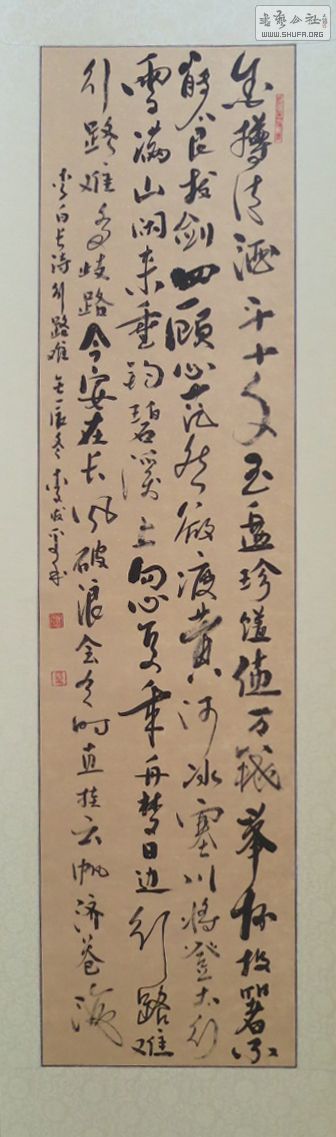 金樽清酒斗十千玉盘珍馐值万钱举杯投箸不
能食拔剑四顾心茫然欲渡黄河冰塞川将登太行
雪满山闲来垂钓碧溪上忽复乘舟梦日边行路难
行路难多歧路今安在长风破浪会有时直挂云帆济苍海
李白长诗行路难 壬辰冬 李
书艺公社
WWW.SHUFA.ORG